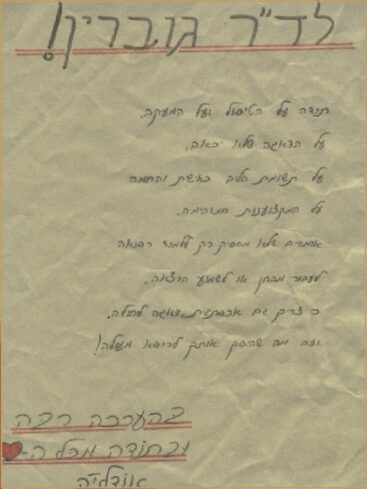 לד"ר גוברין!
תודה על הטיפול ועל המעקב,
על הדאגה שלא יכאב,
על תשומת הלב האישית והחמה
על המקצוענות המדהימה.
אומרים שלא מספיק רק ללמוד רפואה
לעבור מבחן או לשמוע הרצאה,
כי צריך גם אכפתיות ודאגה לחולה,
וזה מה שהופך אותך לרופא מעולה!
בהערכה רבה
ובתודה מכל ה-
אודליה